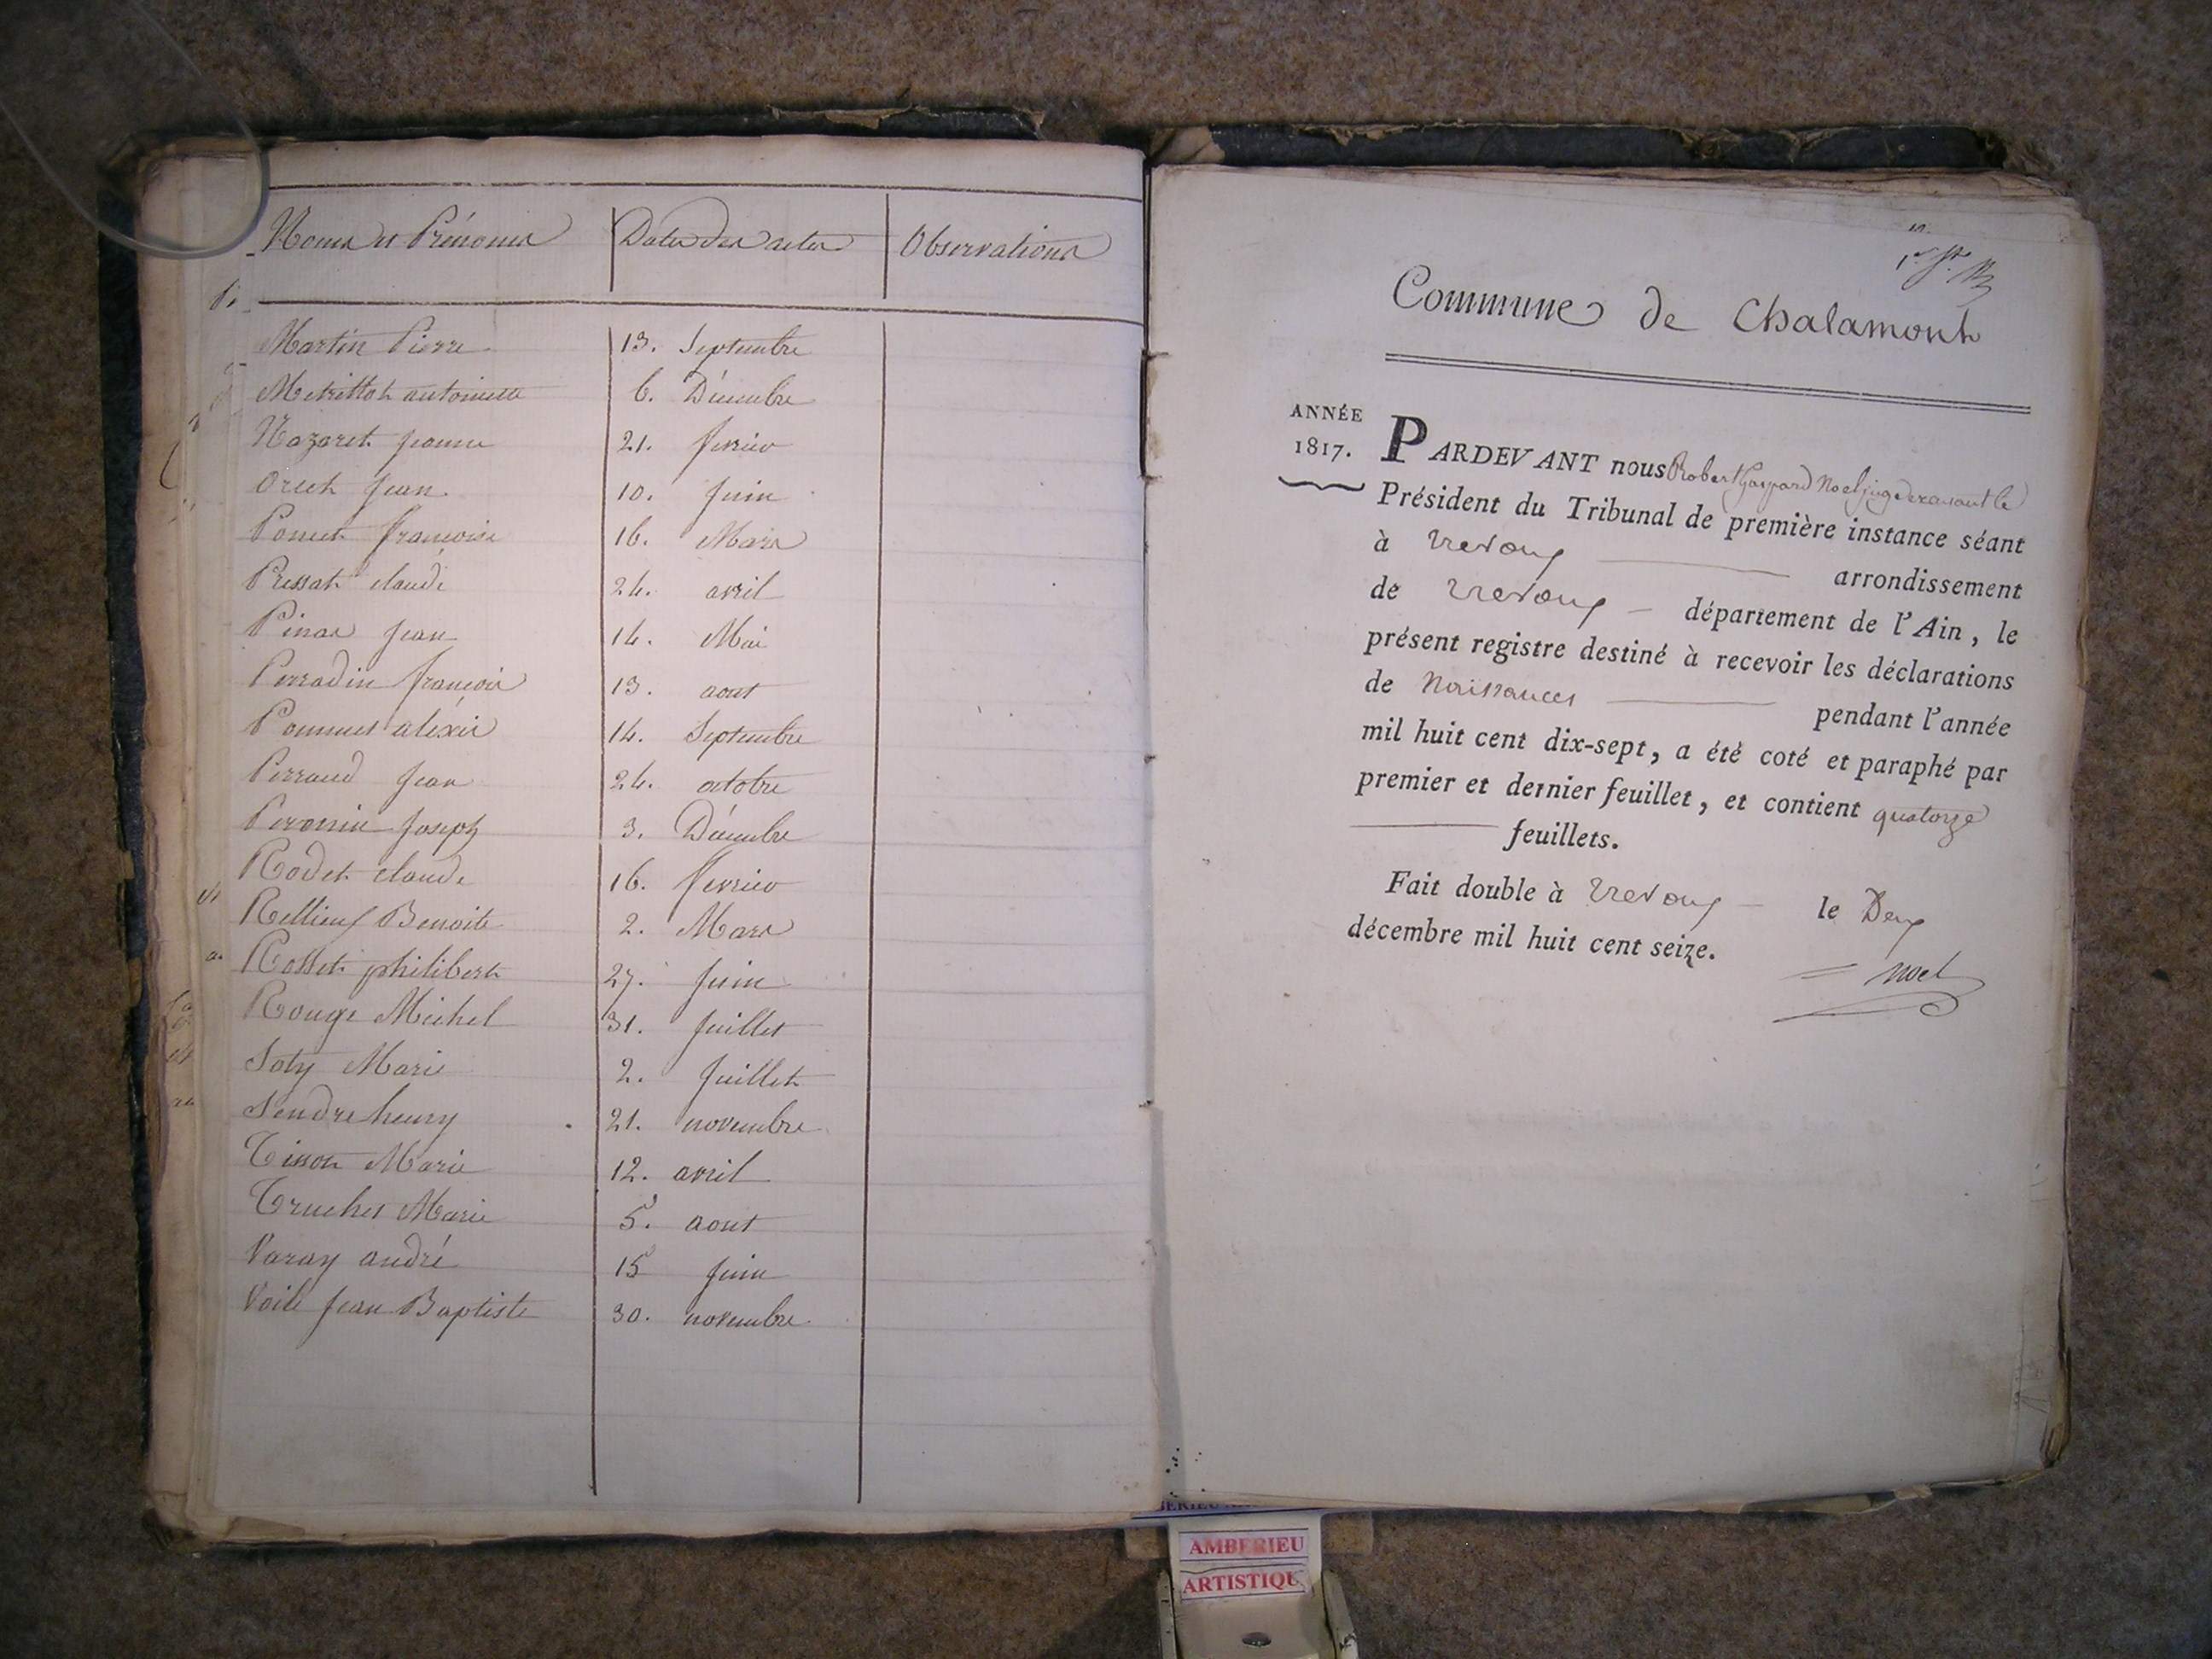 Noms et Prénoms Dates des actes Observations
Martin Pierre 13. Septembre
Metrillot antoinette 6. Décembre
Nazaret jeanne 21. fevrier
Orset jean 10. juin
Ponet françoise 16. Mars
Pressat claude 24. avril
Pinas jean 14. Mai
Perradin françois 13. aout
Pommet aléxis 14. Septembre
Perraud jean 24. octobre
Peronin joseph 3. Décembre
Rodet claude 16. fevrier
Rellieux Benoite 2. Mars
Rosset philibert 27. juin
Rouge Michel 31. juillet
Soty Marie 2. juillet
Sendre henry 21. novembre
Tisson Marie 12. avril
Truchet Marie 5. aout
Varay andré 15 juin
Voile jean Baptiste 30. novembre
Commune de Chalamont
ANNÉE
1817.
PARDEVANT nous Robert Gaspard Noel juge devançant le
Président du Tribunal de première instance séant
à Trevoux arrondissement
de Trevoux département de l'Ain, le
présent registre destiné à recevoir les déclarations
de Naissances pendant l'année
mil huit cent dix-sept, a été coté et paraphé par
premier et dernier feuillet, et contient quatorze
feuillets.
Fait double à Trevoux le Deux
décembre mil huit cent seize.
Noel
AMBERIEU
ARTISTIQU